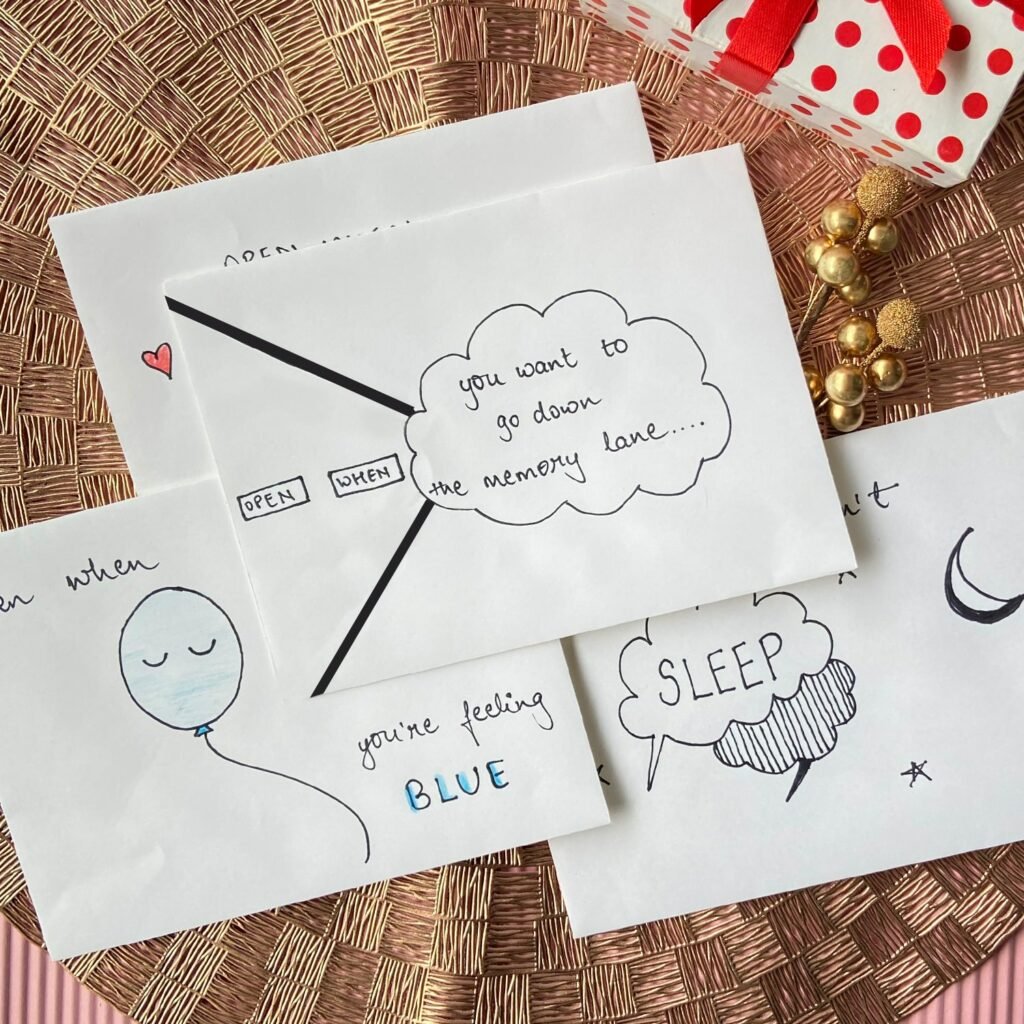 OPEN WHEN
you want to
go down
the memory lane....
when
you're feeling
BLUE
SLEEP